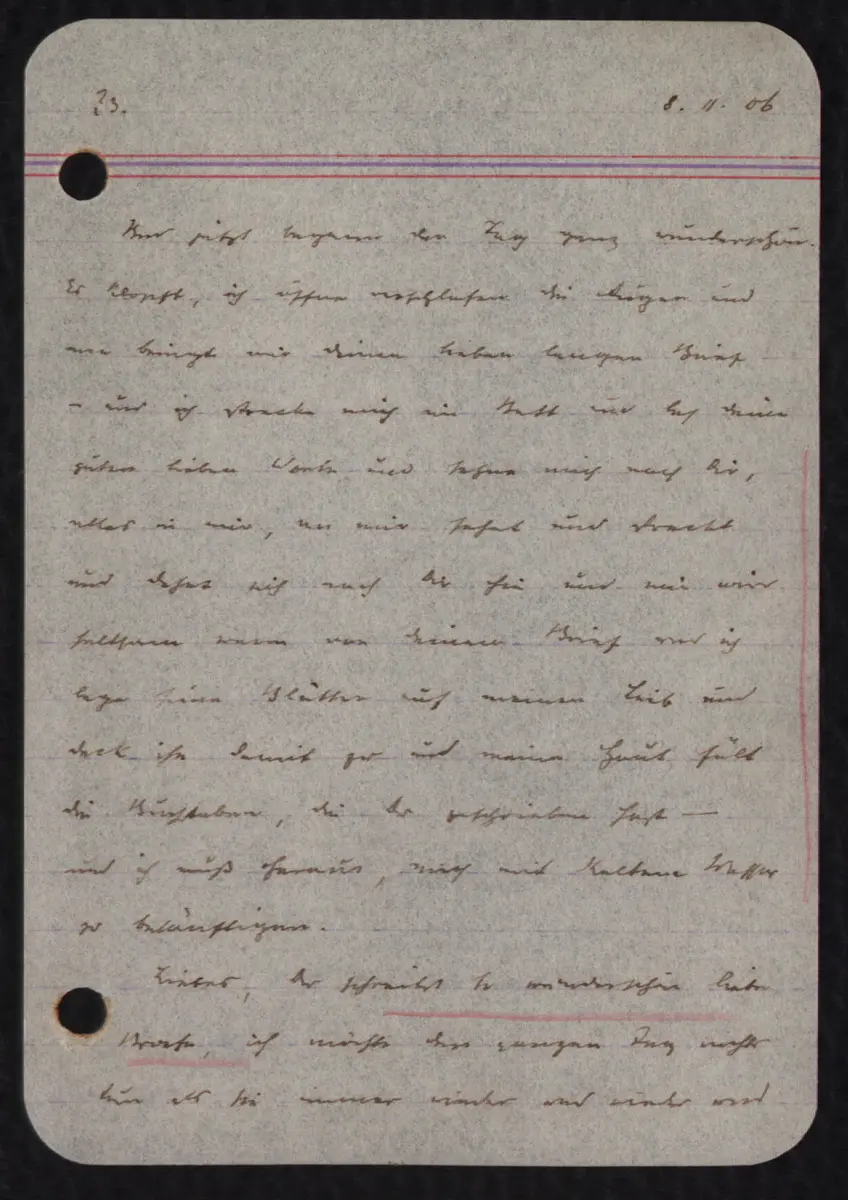 23. 8. 11. 06
Und jetzt begann der Tag ganz wunderschön.
Es klopft, ich öffne verschlafen die Augen und
man bringt mir deinen lieben langen Brief –
– und ich strecke mich im Bett und les deine
guten lieben Worte und sehne mich nach Dir,
alles in mir, an mir sehnt und streckt
und dehnt sich nach Dir hin und mir wird
seltsam warm von deinem Brief und ich
lege seine Blätter auf meinen Leib und
deck ihn damit zu und meine Haut fült
die Buchstaben, die Du geschrieben hast —
und ich muß heraus, mich mit kaltem Wasser
zu besänftigen.
Liebes, Du schreibst so wunderschön liebe
Briefe, ich möchte den ganzen Tag nichts
tun als sie immer wieder und wieder und